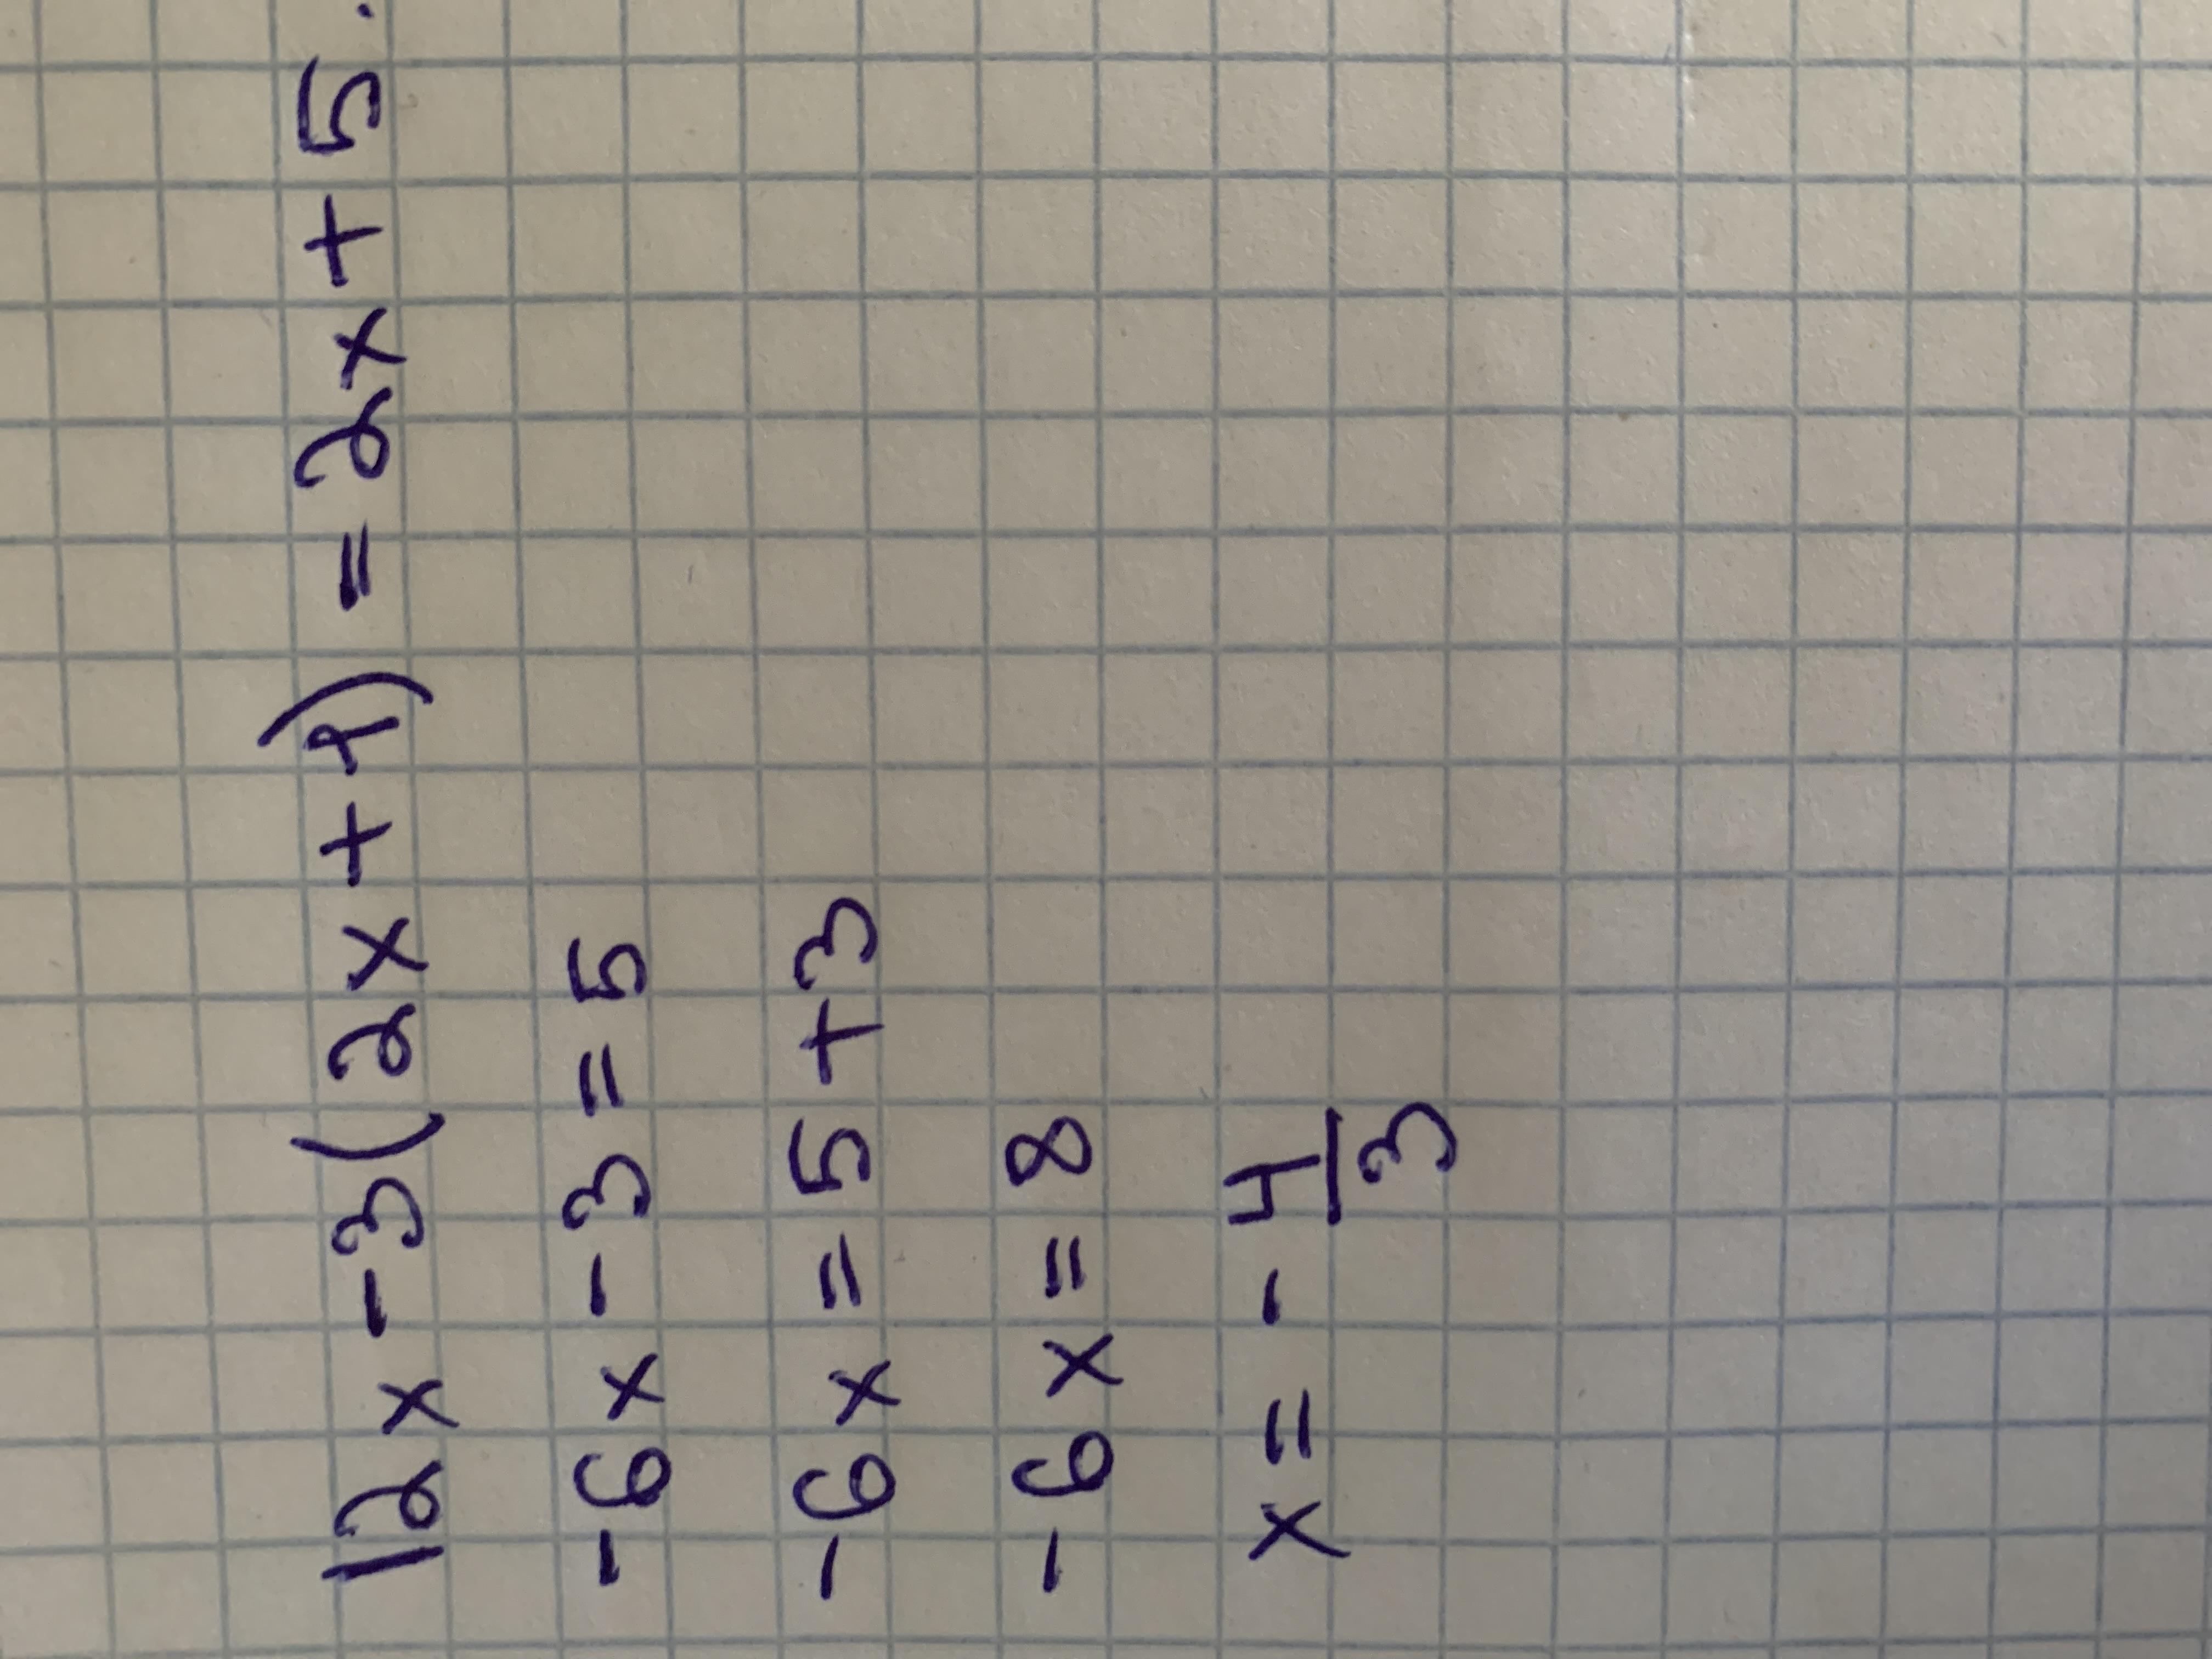 12x - 3(2x + 1) = 2x + 5.
-6x - 3 = 5
-6x = 5 + 3
-6x = 8
x = - 4/3